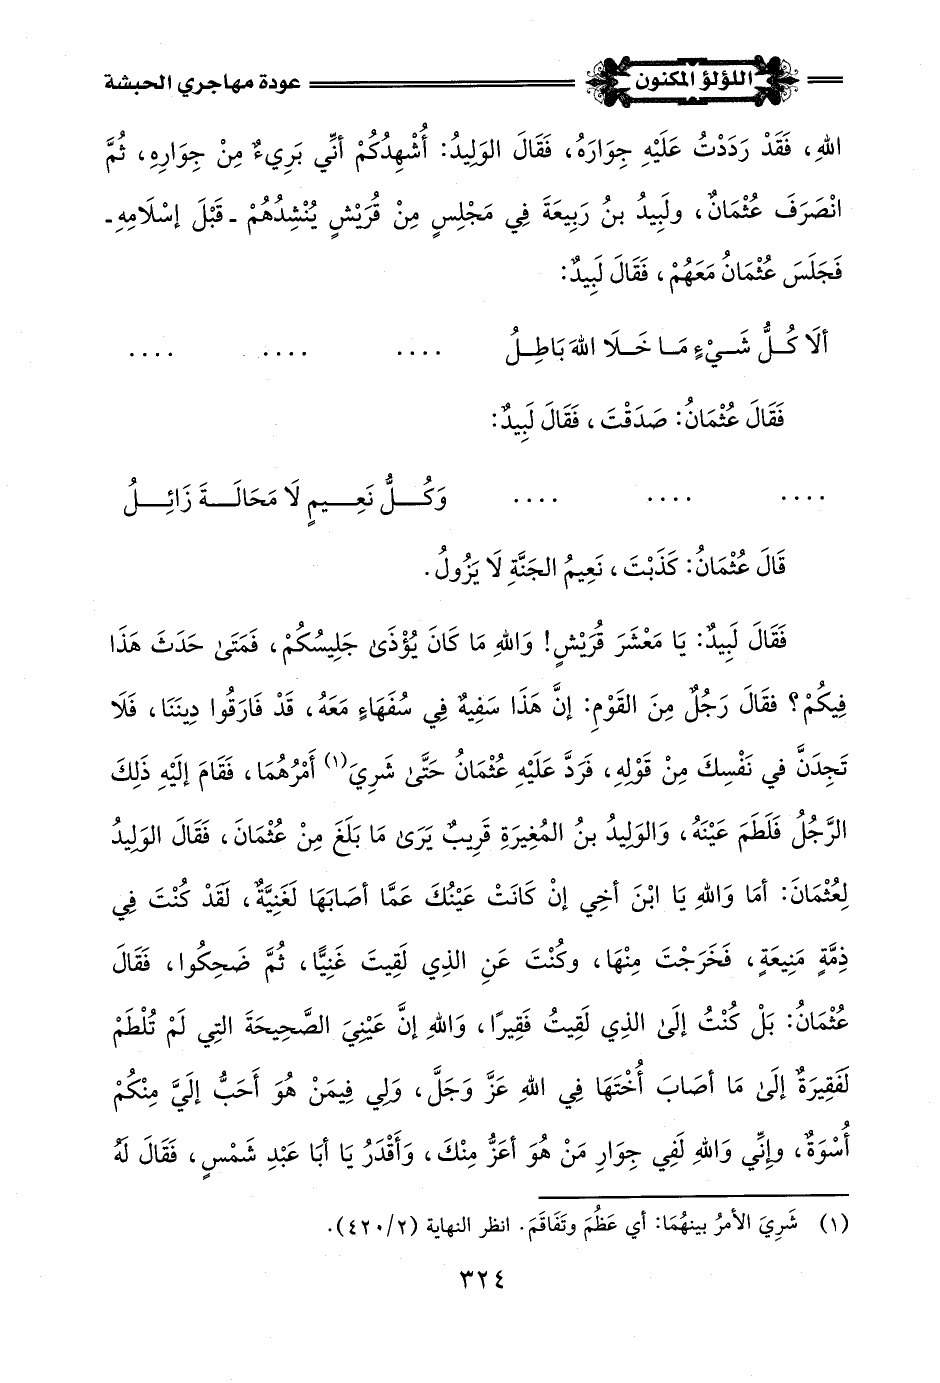 اللؤلؤ المكنون
عودة مهاجري الحبشة
اللهِ، فَقَدْ رَدَدْتُ عَلَيْهِ جِوَارَهُ، فَقَالَ الوَلِيدُ: أُشْهِدُكُمْ أَنِّي بَرِيءٌ مِنْ جِوَارِهِ، ثُمَّ
انْصَرَفَ عُثْمَانُ، ولَبِيدُ بنُ رَبِيعَةَ فِي مَجْلِسٍ مِنْ قُرَيْشٍ يُنْشِدُهُمْ - قَبْلَ إسْلَامِهِ -
فَجَلَسَ عُثْمَانُ مَعَهُمْ، فَقَالَ لَبِيدٌ:
ألَا كُلُّ شَيْءٍ مَا خَلَا اللهَ بَاطِلُ .... .... ....
فَقَالَ عُثْمَانُ: صَدَقْتَ، فَقَالَ لَبِيدٌ:
.... .... .... وَكُلُّ نَعِيمٍ لَا مَحَالَةَ زَائِلُ
قَالَ عُثْمَانُ: كَذَبْتَ، نَعِيمُ الجَنَّةِ لَا يَزُولُ.
فَقَالَ لَبِيدٌ: يَا مَعْشَرَ قُرَيْشٍ! وَاللهِ مَا كَانَ يُؤْذَىٰ جَلِيسُكُمْ، فَمَتَىٰ حَدَثَ هَذَا
فِيكُمْ؟ فقَالَ رَجُلٌ مِنَ القَوْمِ: إنَّ هَذَا سَفِيهٌ فِي سُفَهَاءٍ مَعَهُ، قَدْ فَارَقُوا دِينَنَا، فَلَا
تَجِدَنَّ في نَفْسِكَ مِنْ قَوْلِهِ، فَرَدَّ عَلَيْهِ عُثْمَانُ حَتَّىٰ شَرِيَ(١) أَمْرُهُمَا، فَقَامَ إلَيْهِ ذَلِكَ
الرَّجُلُ فَلَطَمَ عَيْنَهُ، وَالوَلِيدُ بنُ المُغِيرَةِ قَرِيبٌ يَرَىٰ مَا بَلَغَ مِنْ عُثْمَانَ، فَقَالَ الوَلِيدُ
لِعُثْمَانَ: أمَا وَاللهِ يَا ابْنَ أخِي إنْ كَانَتْ عَيْنُكَ عَمَّا أصَابَهَا لَغَنِيَّةٌ، لَقَدْ كُنْتَ فِي
ذِمَّةٍ مَنِيعَةٍ، فَخَرَجْتَ مِنْهَا، وكُنْتَ عَنِ الذِي لَقِيتَ غَنِيًّا، ثُمَّ ضَحِكُوا، فَقَالَ
عُثْمَانُ: بَلْ كُنْتُ إلَىٰ الذِي لَقِيتُ فَقِيرًا، وَاللهِ إنَّ عَيْنِيَ الصَّحِيحَةَ التِي لَمْ تُلْطَمْ
لَفَقِيرَةٌ إلَىٰ مَا أصَابَ أُخْتَهَا فِي اللهِ عَزَّ وَجَلَّ، وَلِي فِيمَنْ هُوَ أَحَبُّ إلَيَّ مِنْكُمْ
أُسْوَةٌ، وإنِّي وَاللهِ لَفِي جِوَارِ مَنْ هُوَ أعَزُّ مِنْكَ، وَأَقْدَرُ يَا أبَا عَبْدِ شَمْسٍ، فَقَالَ لَهُ
(١) شَرِيَ الأمرُ بينهُمَا: أي عَظُمَ وتَفَاقَمَ. انظر النهاية (٤٢٠/٢).
٣٢٤